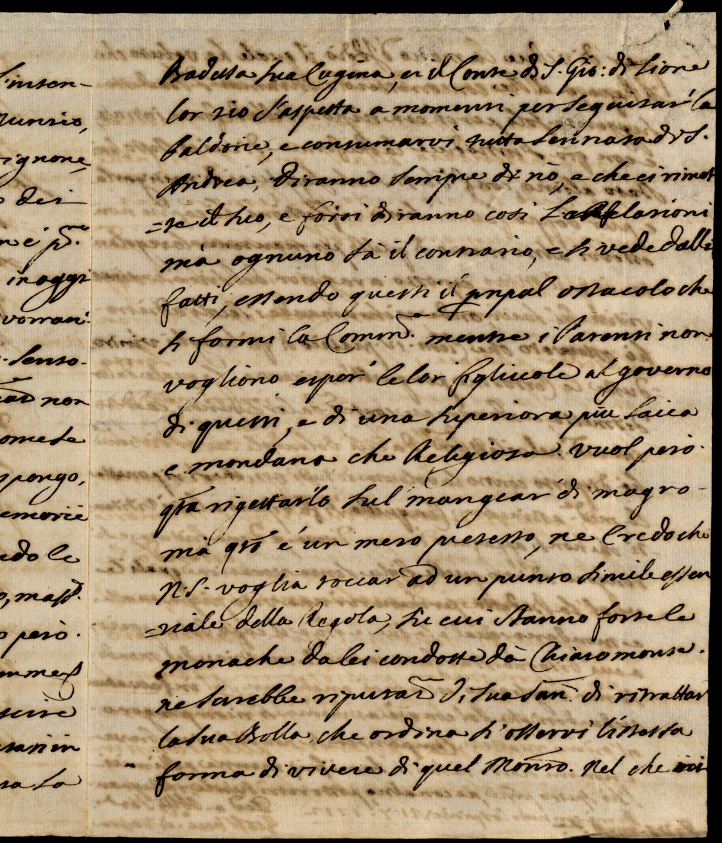 l'inten-
Nunzio,
vignone,
o dei
n è pma.
in oggi
vorran:
. sento-
non
come se
ppongo,
emorie
edo le
o, mass.
o però.
scire
Badessa sua Cugina, ed il Conte di S. Gio: di Fiore
lor zio s'aspetta a momenti per seguitar' la
baldorie, e consumarvi tutta l'ennata di S.
Andrea, diranno sempre di nò, e che ci rimet
=te il suo, e forsi diranno così le relazioni
mà ognuno sà il contrario, e si vede dalli
fatti, essendo questi il pnpal ostacolo che
si formi la Comm. mentre i Parenti non
vogliono espor' le lor figliuole al governo
di questi, e di una superiora più laica
e mondana che Religiosa vuol però.
qta rigettarlo sul mangear' di magro-
mà qto è un mero pretesto, ne credo che
N.S. voglia toccar ad un punto simile essen
=ziale della Regola, su cui stanno forte le
monache da lei condotte dà Chiaromonte.
ne sarebbe riputaz di sua San. di ritrattar
la sua Bolla, che ordina si osservi l'istessa
forma di vivere di quel Monro. Nel che